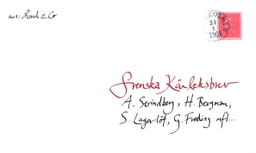 Svenska Kärleksbrev
A. Strindberg, H. Bergman,
S. Lagerlöf, G. Fröding m fl...